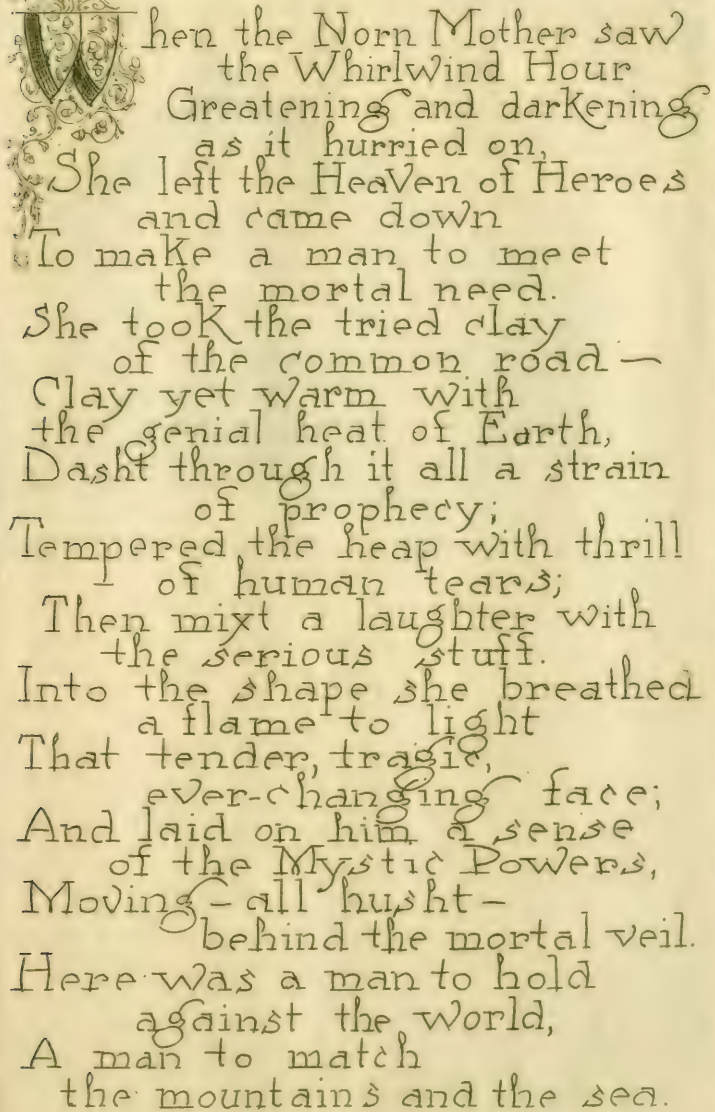 When the Norn Mother saw
the Whirlwind Hour
Greatening and darkening
as it hurried on,
She left the Heaven of Heroes
and came down
To make a man to meet
the mortal need.
She took the tried clay
of the common road —
Clay yet warm with
the genial heat of Earth,
Dasht through it all a strain
of prophecy;
Tempered the heap with thrill
of human tears;
Then mixt a laughter with
the serious stuff.
Into the shape she breathed
a flame to light
That tender, tragic,
ever-changing face;
And laid on him a sense
of the Mystic Powers,
Moving – all husht –
behind the mortal veil.
Here was a man to hold
against the world,
A man to match
the mountains and the sea.